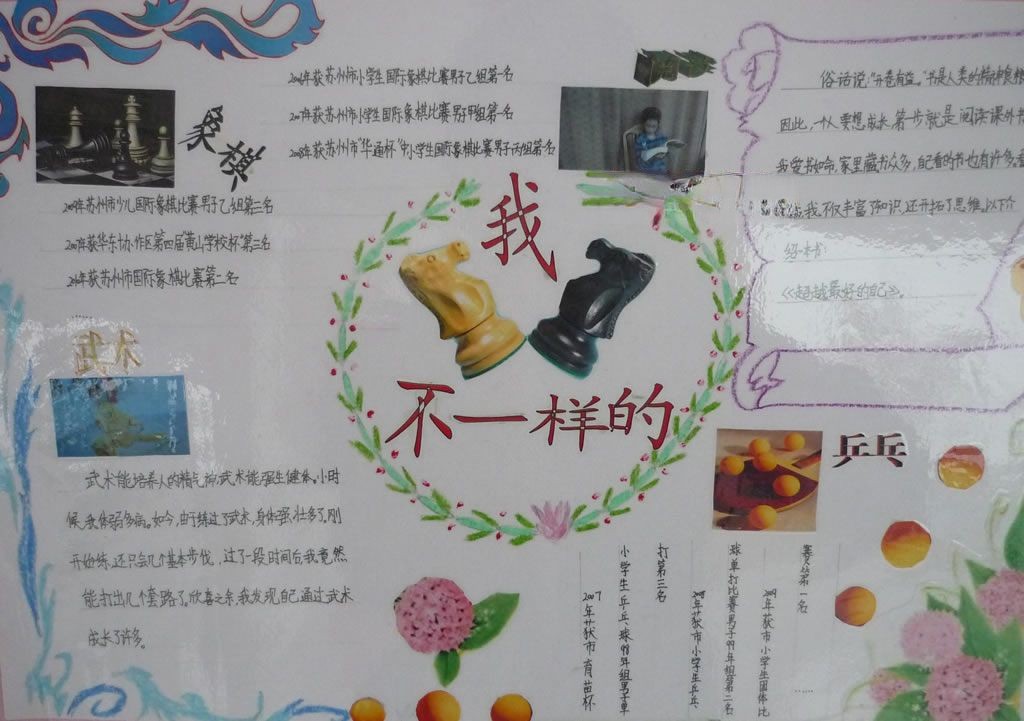 象棋
获苏州市小学生国际象棋比赛男子乙组第一名
获苏州市小学生国际象棋比赛男子甲组第一名
获苏州市"华通杯"中小学生国际象棋比赛男子丙组第一名
苏州市少儿国际象棋比赛男子乙组第三名
获华东协作区第四届"黄山学校杯"第三名
获苏州市国际象棋比赛第二名
……
武术
武术能培养人的精气神,武术能强生健体。小时
候,我体弱多病。如今,由于练过了武术,身体强壮多了。刚
开始练,还只会几个基本步伐,过了一段时间后我竟然
能打出几个套路了。欣喜之余,我发现自己通过武术
成长了许多。
我
不一样的
俗话说:"开卷有益。"书是人类的精神食粮
因此,一个人要想成长,第一步就是阅读课外书
我爱书如命,家里藏书众多,自己看的书也有许多,看
我,不仅丰富了知识,还开拓了思维。以下介
绍一本书:
《超越最好的自己》。
乒乓
赛丛第一名
年获市小学生团体比
……
球单打比赛男子99年组第二名
年获市小学生乒乓
打第三名
小学生乒乓球98年组男子单
2007年获市育苗杯